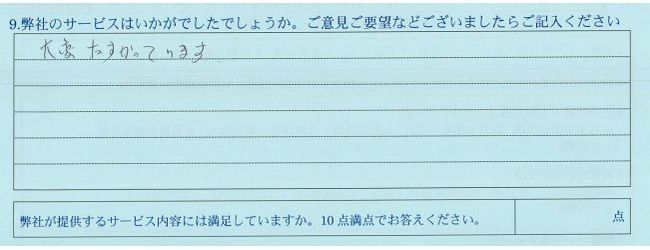 9.弊社のサービスはいかがでしたでしょうか。ご意見ご要望などございましたらご記入ください
大変たすかっています
弊社が提供するサービス内容には満足していますか。10点満点でお答えください。
点